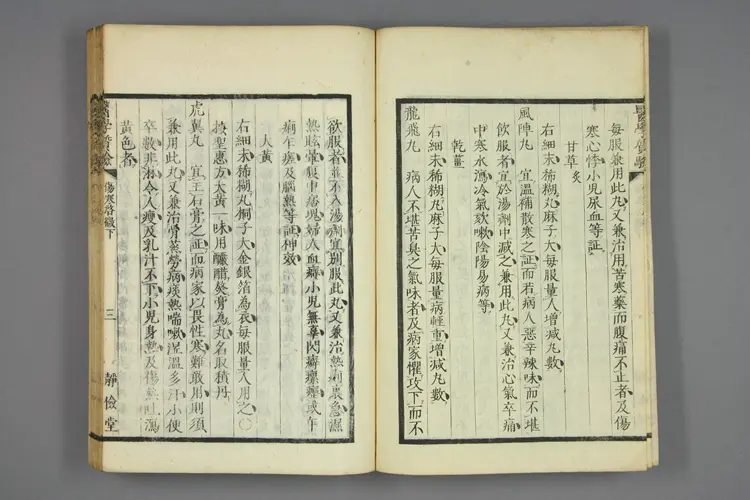 每服兼用此丸又兼治用苦寒藥而腹痛不止者及傷
寒心悸小兒尿血等証
甘草炙
右細末稀糊丸麻子大每服量人增减丸數
風陣丸 宜溫補散寒之証而若病人惡辛辣味而不堪
飲服者宜於湯劑中减之兼用此丸又兼治心氣卒痛
中寒水瀉冷氣欬嗽陰陽易病等
乾薑
右細末稀糊丸麻子大每服量病輕重增减丸數
龍飛丸 病人不堪苦臭之氣味者及病家懼攻下而不
欲服者並不入湯劑宜別服此丸又兼治熱病裏急濕
熱眩暈裏中痞塊婦人血癖小兒無辜閃癖瘰癧或午
病乍瘥及腦熱等証神效
大黃
右細末稀糊丸桐子大金銀箔為衣每服量人用之○
按聖惠方大黃一味用釅醋熬膏為丸名取積丹
虎翼丸 宜主石膏之証而病家以畏性寒難敢用則須
兼用此丸又兼治骨蒸勞病痰熱喘嗽濕溫多汗小便
卒數非淋令人瘦及乳汁不下小兒身熱及傷熱吐瀉
黃色者
傷寒啓微下
三
靜儉堂